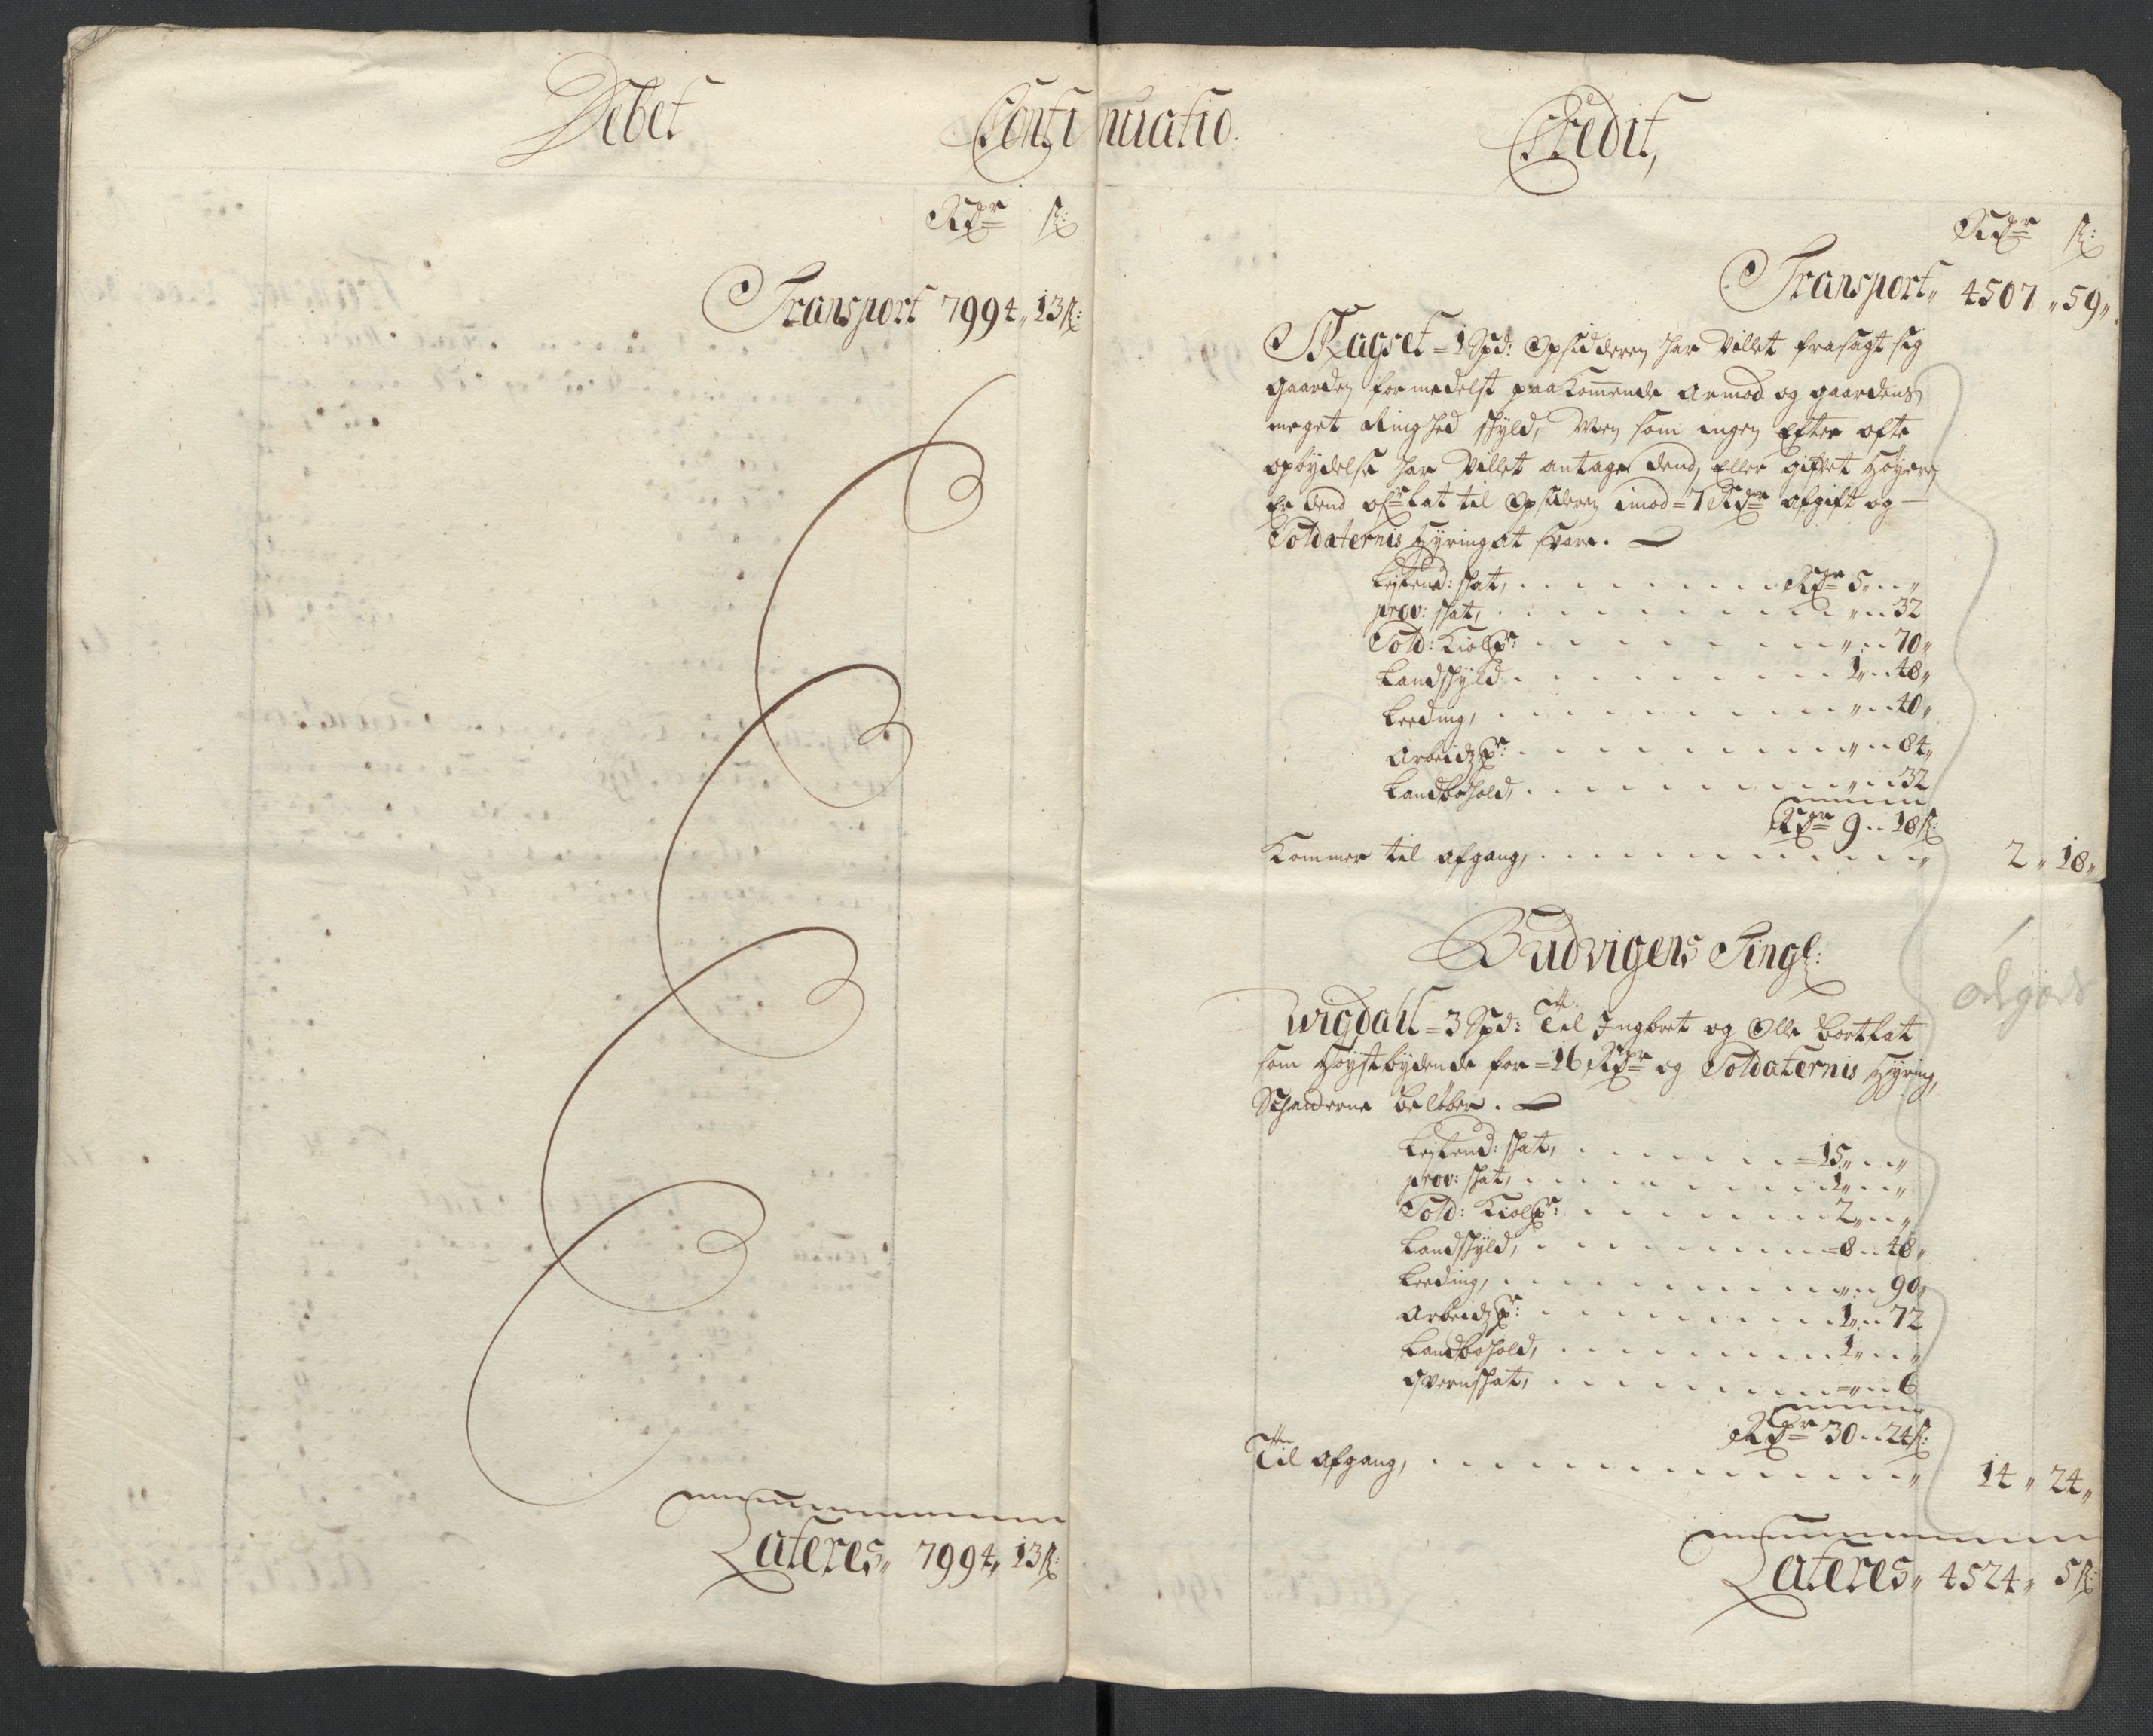 Debet Continuatio. Credit,
Rdr ß:
Transport 7994,, 13 ß:
Lateres,, 7994,, 13 ß:
Rdr ß:
Transport,, 4507 ,, 59 ,,
Skagset = 1 Spd: Opsidderen har villet frasagt sig
gaarden formedelst paakomende armod og gaardens
meget ringhed skyld, Men som ingen efter ofte
opbydelse har villet antage dend, eller gifvet høyere,
er dend ofr lat til Opsideren imod = 7 Rdr afgift og
Soldaternis hyring at svare.
Leilend: skat, . . . Rdr 5 ,, .. ,,
prov: skat, . . . ,, .. 32
Sold: Kiolp: . . . ,, .. 70 ,,
Landskyld . . . 1 ,, .. 48 ,,
Leeding, . . . ,, .. 40 ,,
Arbeidzp: . . . ,, .. 84 ,,
Landbohold, . . . ,, .. 32
Rdr 9 .. 18 ß:
Kommer til afgang, . . . 2 ,, 18 ,,
Budvigens Tingl:
Wigdahl = 3 Spd: Til Ingbret og Olle bortlat
som høystbydende for = 16 Rdr og Soldaternis hyring,
Schatterne beløber.
Leilend: skat, . . . = 15 ,, .. ,,
prov: skat, . . . 1 ,, .. ,,
Sold: Kiolp: . . . 2 ,, .. ,,
Landskyld, . . . = 8 .. 48 ,,
Leeding, . . . ,, .. 90 ,,
Arbeidzp: . . . 1 ,, .. 72
Landbohold, . . . 1 ,, .. ,,
Qvernskat, . . . = ,, .. 6
Rdr 30 .. 24 ß:
Til afgang, . . . 14 ,, 24 ,,
Lateres,, 4524 ,, 5 ß: